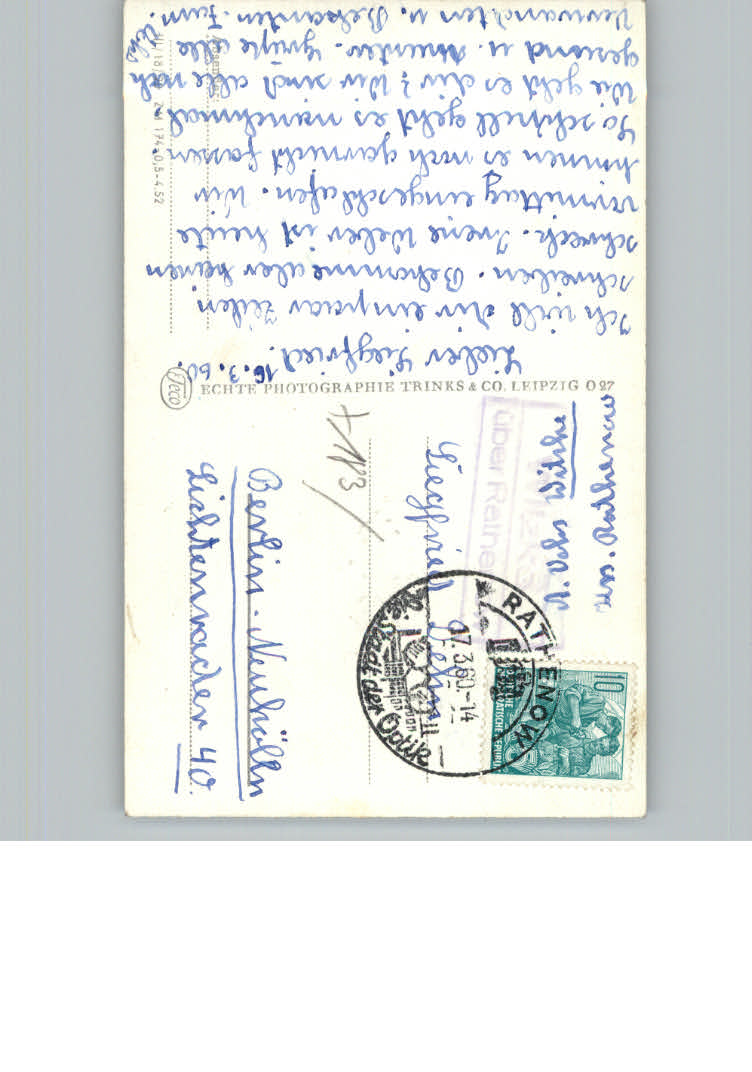 16.3.60.
Lieber Siegfried.
Ich will dir ein paar Zeilen
schreiben. Bekomme aber keinen
schreck. Irene Weber ist heute
vormittag eingeschlafen. Wir
können es noch garnicht fassen.
So schnell geht es manchmal.
Wie geht es dir? Wir sind alle noch
gesund u. munter. Grüße alle
Verwandten u. Bekannten. Fam.
III/18/ 174-0,5-4.52
Teco
ECHTE PHOTOGRAPHIE TRINKS & CO. LEIPZIG O 27
Absender:
über Rathenow
RATHENOW
17.3.60-14
die Stadt der Optik
10
DEUTSCHE
DEMOKRATISCHE REPUBLIK
+183
Siegfried
Berlin-Neukölln
Lichtenrader 40.